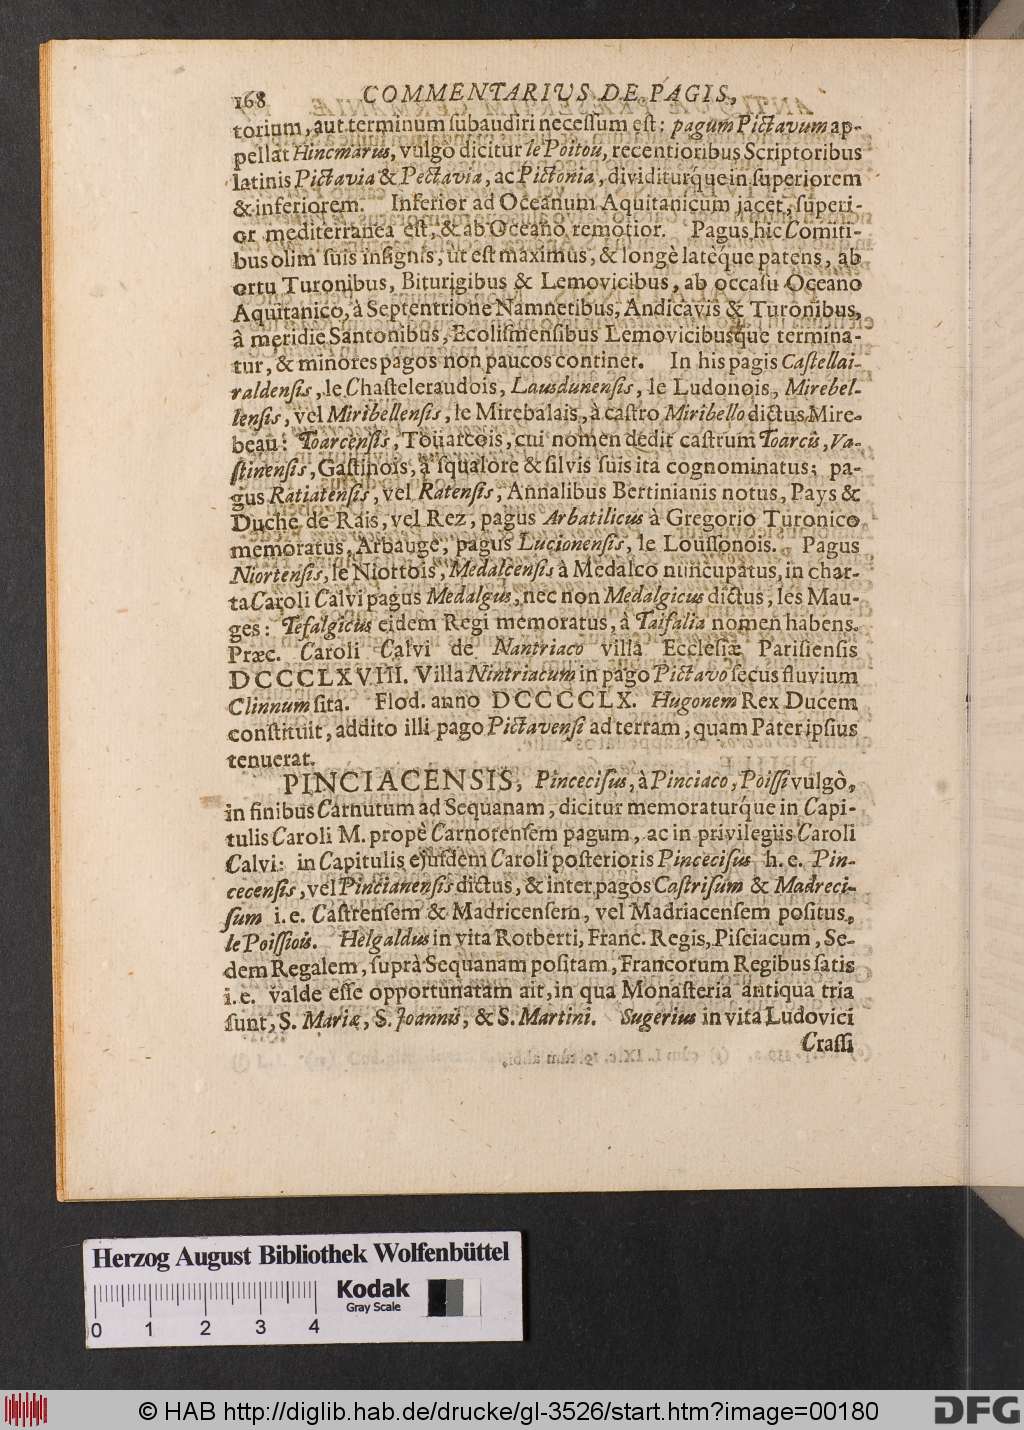 168 COMMENTARIUS DE PAGIS,
torium, aut terminum ſubaudiri neceſſum eſt: pagum Pictavum ap-
pellat Hincmarus, vulgo dicitur le Poitou, recentioribus Scriptoribus
latinis Pictavia & Pectavia, ac Pictonia, dividiturque in ſuperiorem
& inferiorem. Inferior ad Oceanum Aquitanicum jacet, ſuperi-
or mediterranea eſt, & ab Oceano remotior. Pagus hic Comiti-
bus olim ſuis inſignis, ut eſt maximus, & longè latéque patens, ab
ortu Turonibus, Biturigibus & Lemovicibus, ab occaſu Oceano
Aquitanico, à Septentrione Namnetibus, Andicavis & Turonibus,
â meridie Santonibus, Ecoliſmenſibus Lemovicibusque termina-
tur, & minores pagos non paucos continet. In his pagis Caſtellai-
raldenſis, le Chaſteleraudois, Lausdunenſis, le Ludonois, Mirebel-
lenſis, vel Miribellenſis, le Mirebalais, à caſtro Miribello dictus Mire-
beau: Toarcenſis, Toüarcois, cui nomen dedit caſtrum Toarcis, Va-
ſtinenſis, Gaſtinois, à ſqualore & ſilvis ſuis ita cognominatus; pa-
gus Ratiatenſis, vel Ratenſis, Annalibus Bertinianis notus, Pays &
Duche de Rais, vel Rez, pagus Arbatilicus à Gregorio Turonico
memoratus, Arbauge, pagus Lucionenſis, le Louſſonois. Pagus
Niortenſis, le Niortois, Medalcenſis à Medalco nuncupatus, in char-
ta Caroli Calvi pagus Medalgus, nec non Medalgicus dictus, les Mau-
ges: Tefalgicus eidem Regi memoratus, à Taifalia nomen habens.
Præc. Caroli Calvi de Nantriaco villa Eccleſiæ Pariſienſis
DCCCLXVIII. Villa Nintriacum in pago Pictavo ſecus fluvium
Clinnum ſita. Flod. anno DCCCCLX. Hugonem Rex Ducem
conſtituit, addito illi pago Pictavenſi ad terram, quam Pater ipſius
tenuerat.
PINCIACENSIS, Pinceciſus, à Pinciaco, Poiſſi vulgò,
in finibus Carnutum ad Sequanam, dicitur memoratur'que in Capi-
tulis Caroli M. propè Carnotenſem pagum, ac in privilegiis Caroli
Calvi: in Capitulis ejuſdem Caroli poſterioris Pinceciſus h. e. Pin-
cecenſis, vel Pincianenſis dictus, & inter pagos Caſtriſum & Madreci-
ſum i. e. Caſtrenſem & Madricenſem, vel Madriacenſem poſitus,
le Poiſſiois. Helgaldus in vita Rotberti, Franc. Regis, Piſciacum, Se-
dem Regalem, ſuprà Sequanam poſitam, Francorum Regibus ſatis
i. e. valde eſſe opportunatam ait, in qua Monaſteria antiqua tria
ſunt, S. Mariæ, S. Joannis, & S. Martini. Sugerius in vita Ludovici
Craſſi
Herzog August Bibliothek Wolfenbüttel
Kodak
Gray Scale
0 1 2 3 4
© HAB http://diglib.hab.de/drucke/gl-3526/start.htm?image=00180
DFG